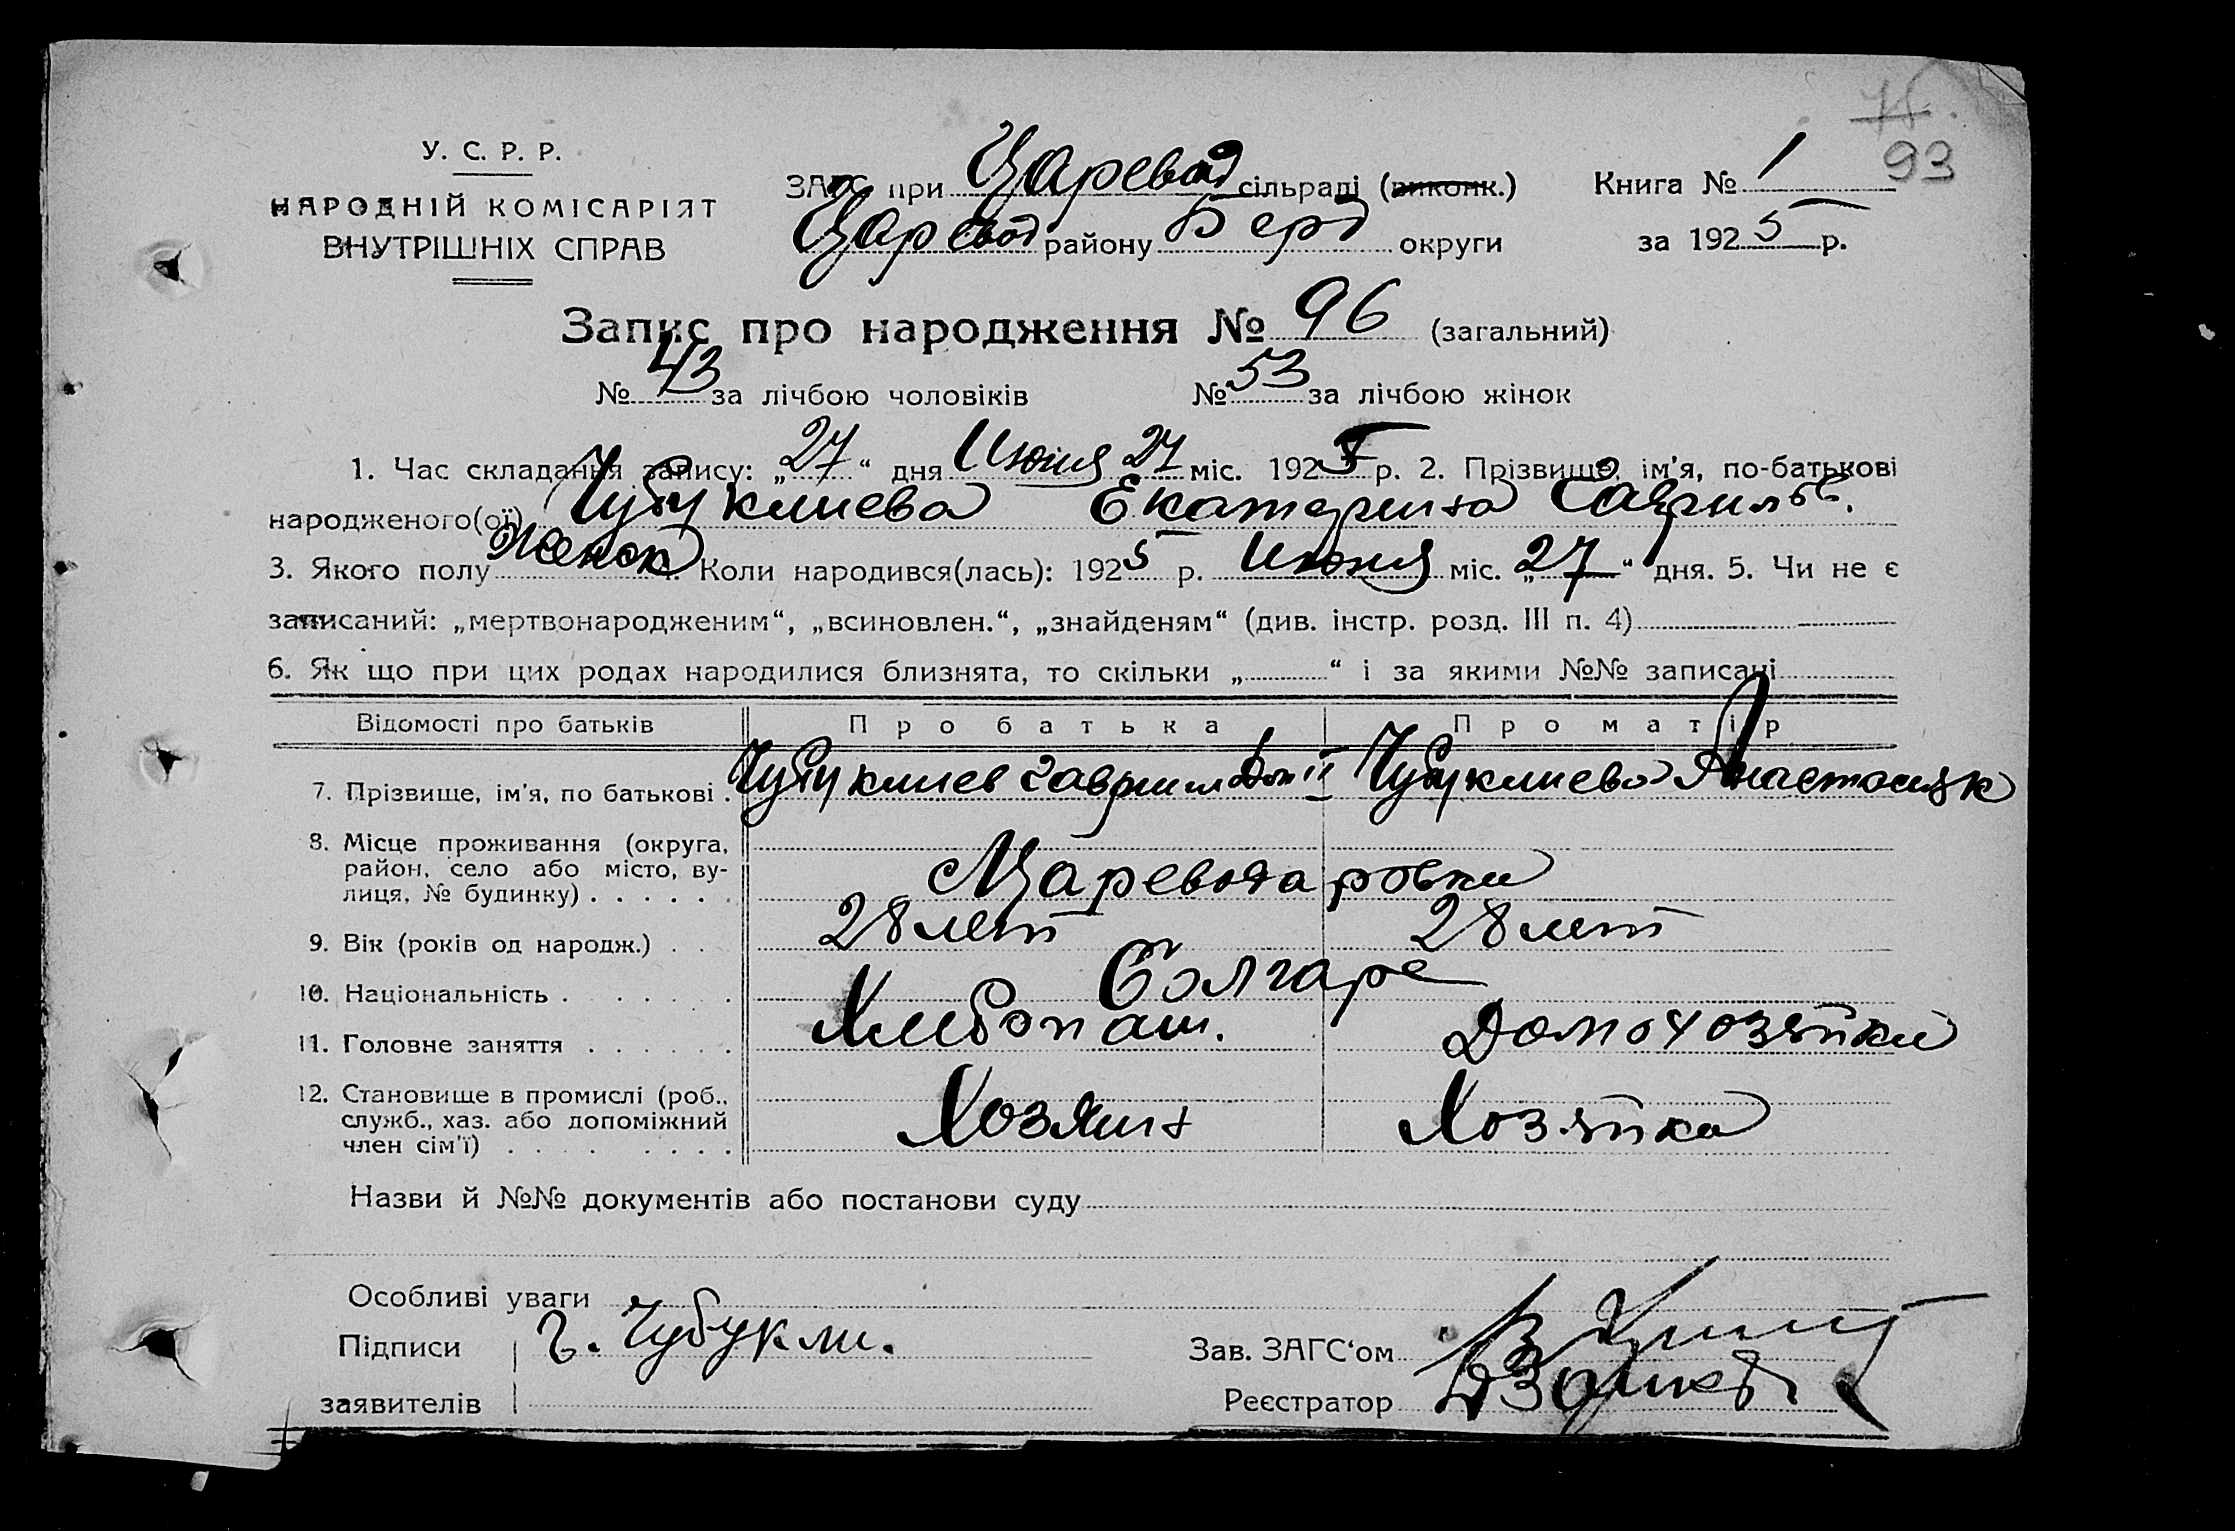 75.
93
У. С. Р. Р.
НАРОДНІЙ КОМІСАРІЯТ
ВНУТРІШНІХ СПРАВ
ЗАГС при Царевод сільраді (виконк.)
Царевод району Берд округи
Книга № 1
за 1925 р.
Запис про народження № 96 (загальний)
№ 43 за лічбою чоловіків № 53 за лічбою жінок
1. Час складання запису: „27“ дня Июня 27 міс. 1925 р. 2. Прізвище, ім'я, по-батькові
народженого(ої) Чубуклиева Екатерина Гаврильев.
3. Якого полу женск 4. Коли народився(лась): 1925 р. Июня міс. „27“ дня. 5. Чи не є
записаний: „мертвонародженим“, „всиновлен.“, „знайденям“ (див. інстр. розд. III п. 4)
6. Як що при цих родах народилися близнята, то скільки „ “ і за якими №№ записані
Відомості про батьків Про батька Про матір
7. Прізвище, ім'я, по батькові . Чубуклиев Гавриил Чубуклиева Анастасия К
8. Місце проживання (округа,
район, село або місто, ву-
лиця, № будинку) . . . . . . Цареводаровки
9. Вік (років од народж.) . . 28 лет 28 лет
10. Національність . . . . . . Болгаре
11. Головне заняття . . . . . . Хлебопаш. Домохозяйки
12. Становище в промислі (роб.,
служб., хаз. або допоміжний
член сім'ї) . . . . . . . . Хозяин Хозяйка
Назви й №№ документів або постанови суду
Особливі уваги
Підписи Г. Чубукли.
заявителів
Зав. ЗАГС‘ом
Реєстратор